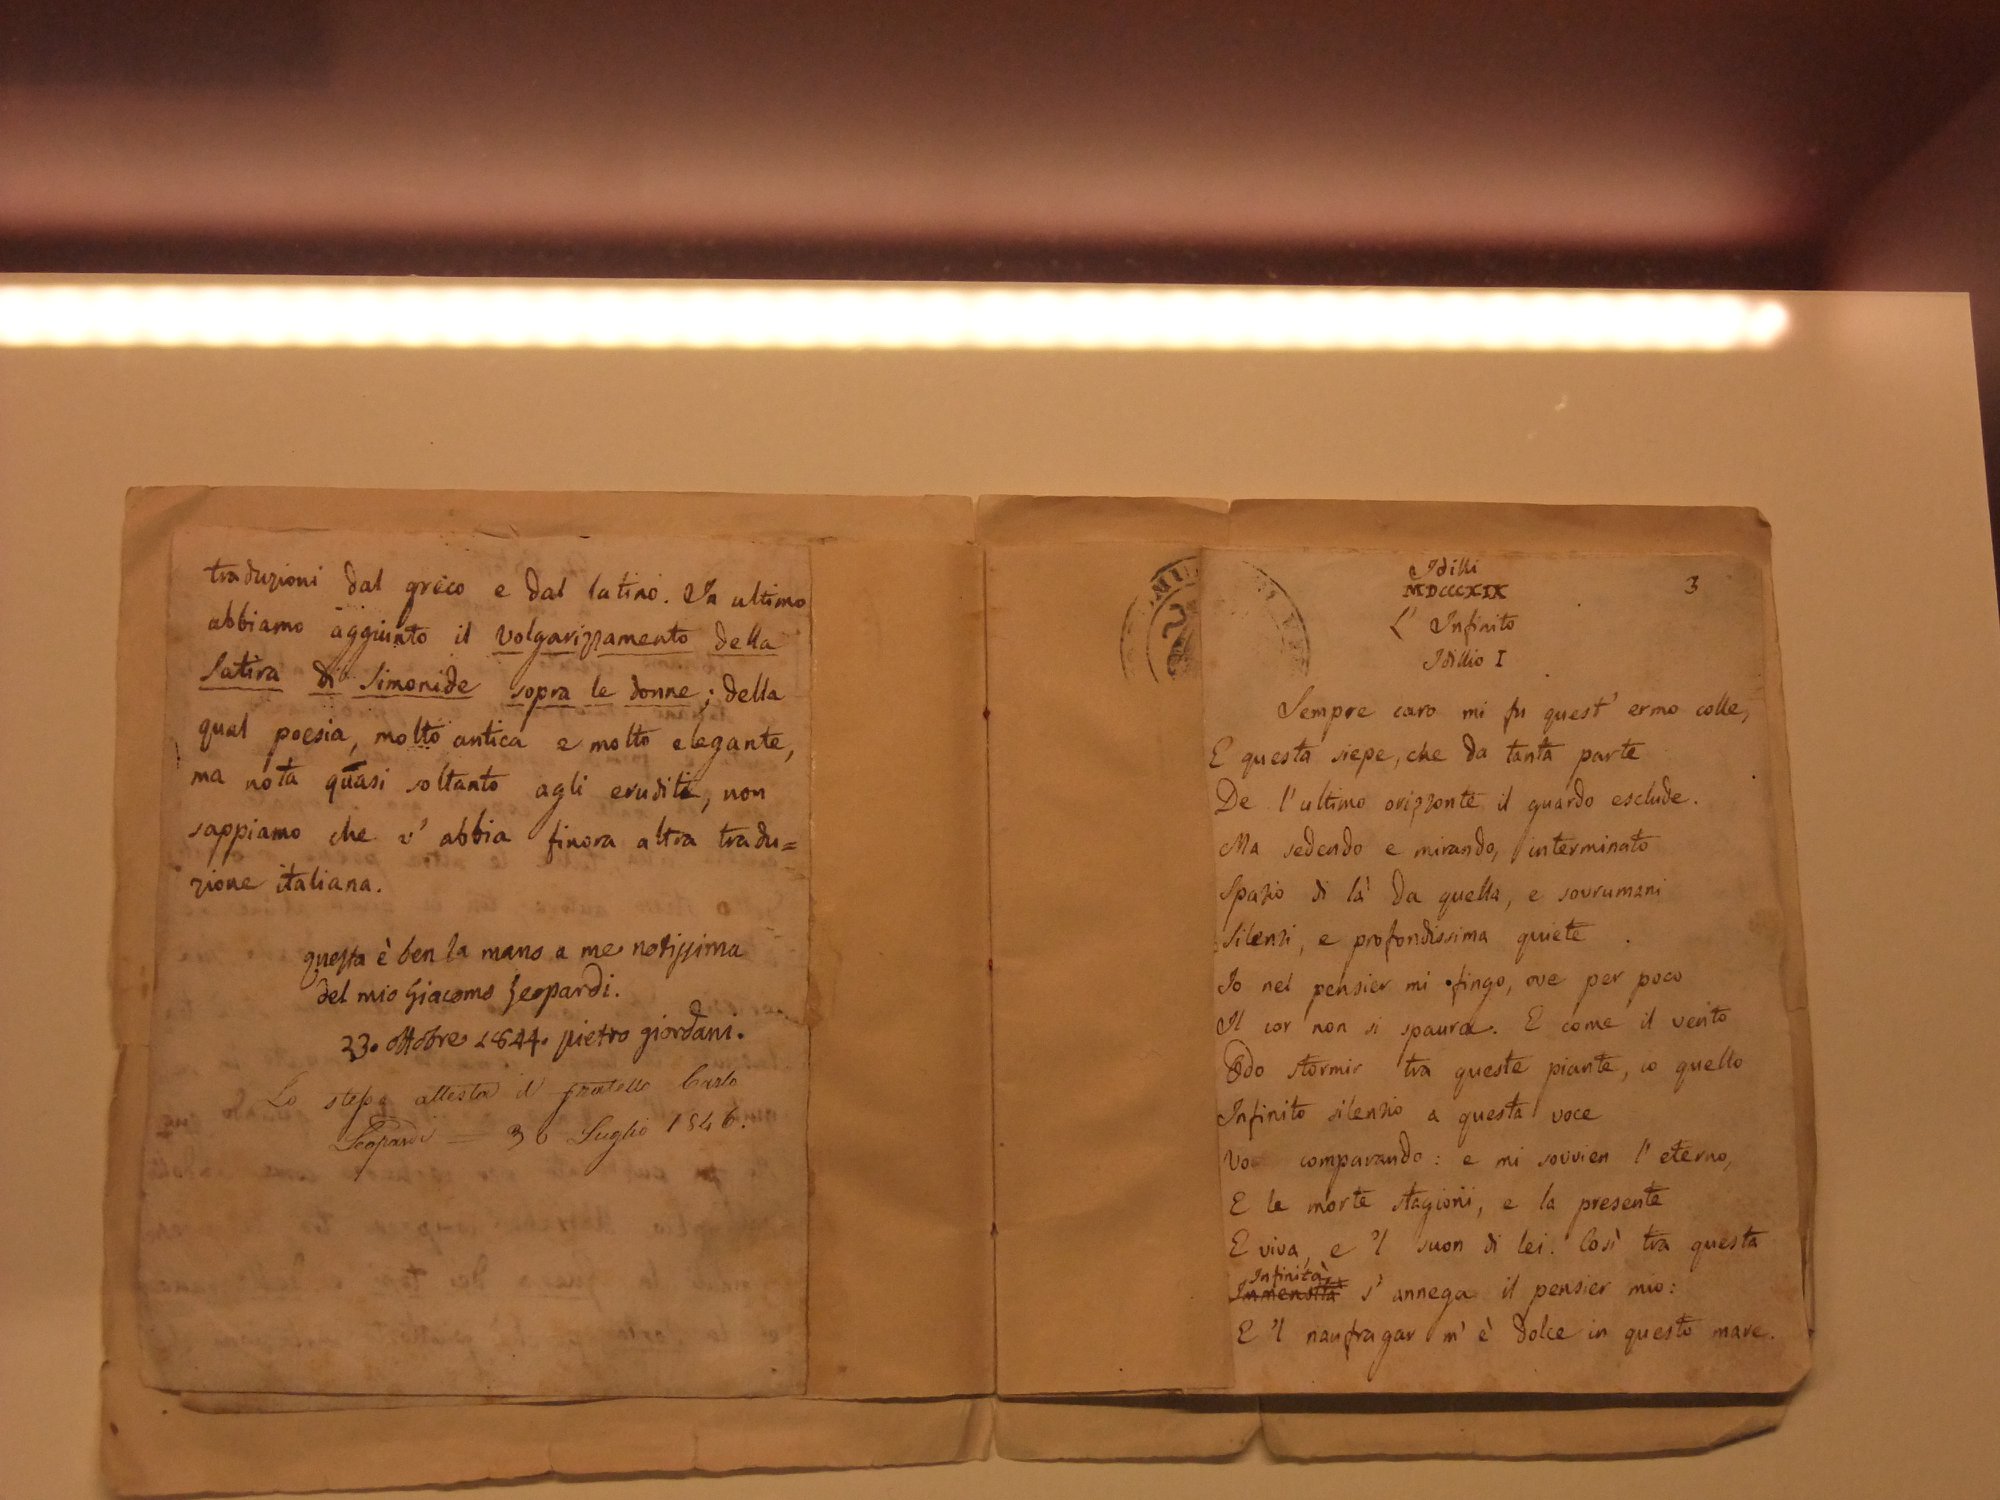 traduzioni dal greco e dal latino. In ultimo
abbiamo aggiunto il volgarizzamento della
satira di Simonide sopra le donne; della
qual poesia, molto antica e molto elegante,
ma nota quasi soltanto agli eruditi, non
sappiamo che v' abbia finora altra tradu=
zione italiana.
questa è ben la mano a me notissima
del mio Giacomo Leopardi.
23. ottobre 1844. pietro giordani.
Lo stesso attesta il fratello Carlo
Leopardi — 30 Luglio 1846.
Idilli
MDCCCXIX
3
L' Infinito
Idillio I
Sempre caro mi fu quest' ermo colle,
E questa siepe, che da tanta parte
De l' ultimo orizzonte il guardo esclude.
Ma sedendo e mirando, interminato
Spazio di là da quella, e sovrumani
Silenzi, e profondissima quiete
Io nel pensier mi fingo, ove per poco
Il cor non si spaura. E come il vento
Odo stormir tra queste piante, io quello
Infinito silenzio a questa voce
Vo comparando: e mi sovvien l' eterno,
E le morte stagioni, e la presente
E viva, e 'l suon di lei. Così tra questa
Infinità
Immensità s' annega il pensier mio:
E 'l naufragar m' è dolce in questo mare.